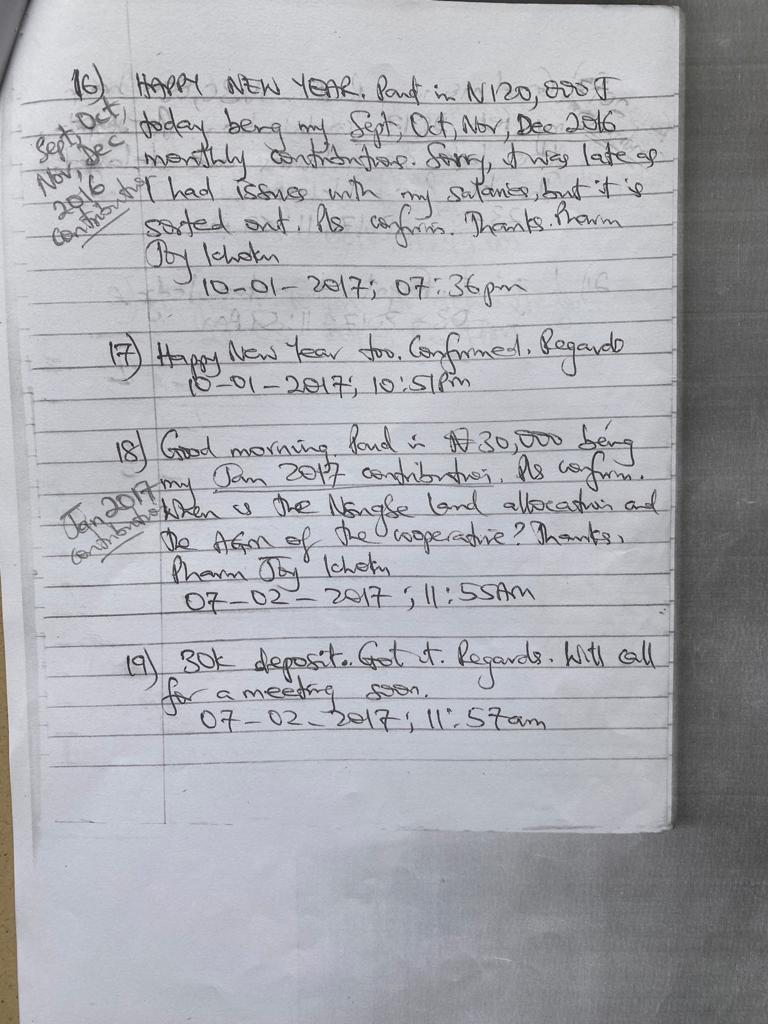 16) HAPPY NEW YEAR. Paid in N120,000
today being my Sept, Oct, Nov, Dec 2016
monthly contributions. Sorry, it was late as
I had issues with my salaries, but it is
sorted out. Pls confirm. Thanks. Pharm
Joy Ichoku
10-01-2017; 07:36pm
Sept, Oct,
Nov, Dec
2016
contribution
17) Happy New Year too. Confirmed. Regards
10-01-2017; 10:51pm
18) Good morning. Paid in ₦30,000 being
my Jan 2017 contribution. Pls confirm.
When is the land allocation and
the AGM of the cooperative? Thanks,
Pharm Joy Ichoku
07-02-2017; 11:55AM
Jan 2017
contribution
19) 30k deposit. Got it. Regards. Will call
for a meeting soon.
07-02-2017; 11:57am